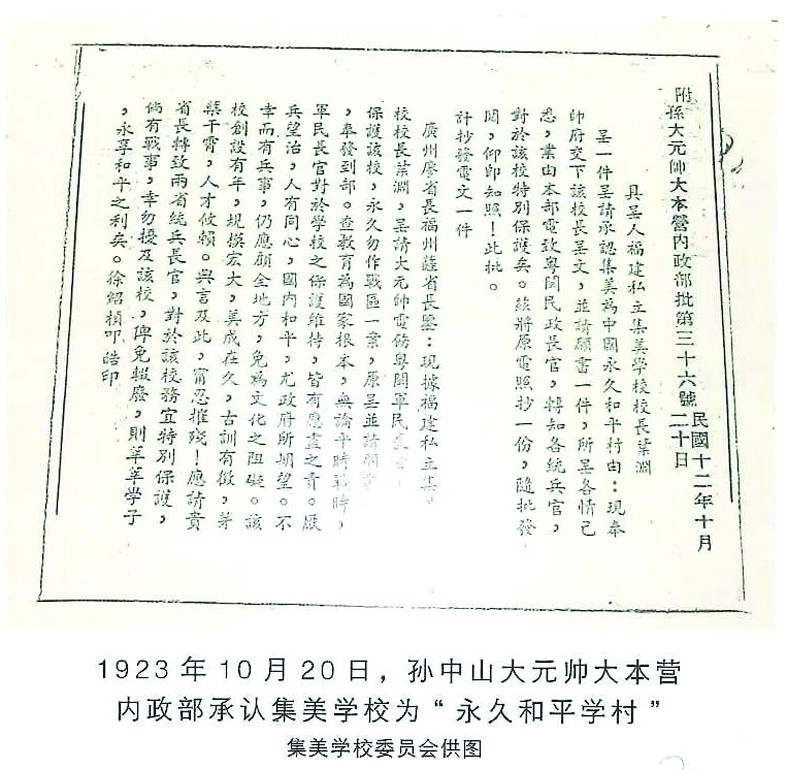 附孫大元帥大本營內政部批第三十六號
民國十二年十月
二十日
具呈人福建私立集美學校校長葉淵
呈一件呈請承認集美為中國永久和平村由：現奉
帥府交下該校長呈文，並請願書一件，所呈各情已
悉，業由本部電致粵閩民政長官，轉知各統兵官，
對於該校特別保護矣。茲將原電照抄一份，隨批發
閱，仰卽知照！此批。
計抄發電文一件
廣州廖省長福州薩省長鑒：現據福建私立集
校校長葉淵，呈請大元帥電飭粵閩軍民長官，
保護該校，永久勿作戰區一案，原呈並請願書
，奉發到部。查教育為國家根本，無論平時戰時，
軍民長官對於學校之保護維持，皆有應盡之責。厥
兵望治，人有同心，國內和平，尤政府所期望。不
幸而有兵事，仍應顧全地方，免為文化之阻礙。該
校創設有年，規模宏大，美成在久，古訓有徵，芽
蘖干霄，人才攸賴。興言及此，甯忍摧殘！應請貴
省長轉致兩省統兵長官，對於該校務宜特別保護，
倘有戰事，幸勿擾及該校，俾免輟廢，則莘莘學子
，永享和平之利矣。徐紹楨叩皓印
1923年10月20日，孙中山大元帅大本营
内政部承认集美学校为“永久和平学村”
集美学校委员会供图